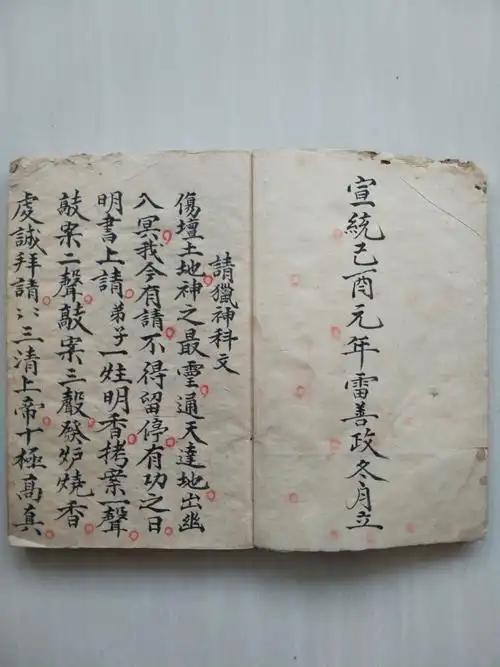 宣統己酉元年雷善政冬月立
請獵神科文
傷壇土地神之最靈通天達地出幽
入冥我今有請不得留停有功之日
明書上請弟子一炷明香拷案一聲
敲案二聲敲案三聲發炉燒香
虔誠拜請〻三清上帝十極高真